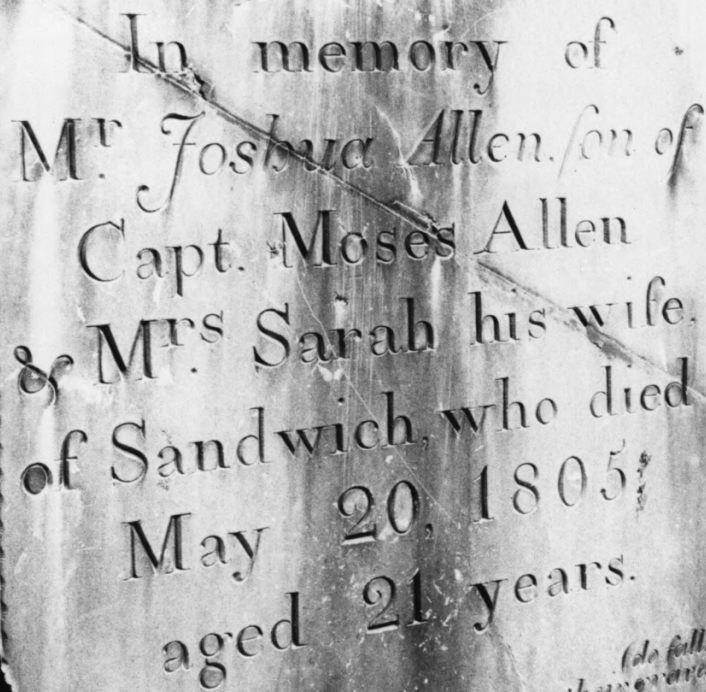 In memory of
Mr. Joshua Allen, ſon of
Capt. Moses Allen
& Mrs. Sarah his wife,
of Sandwich, who died
May 20, 1805,
aged 21 years.